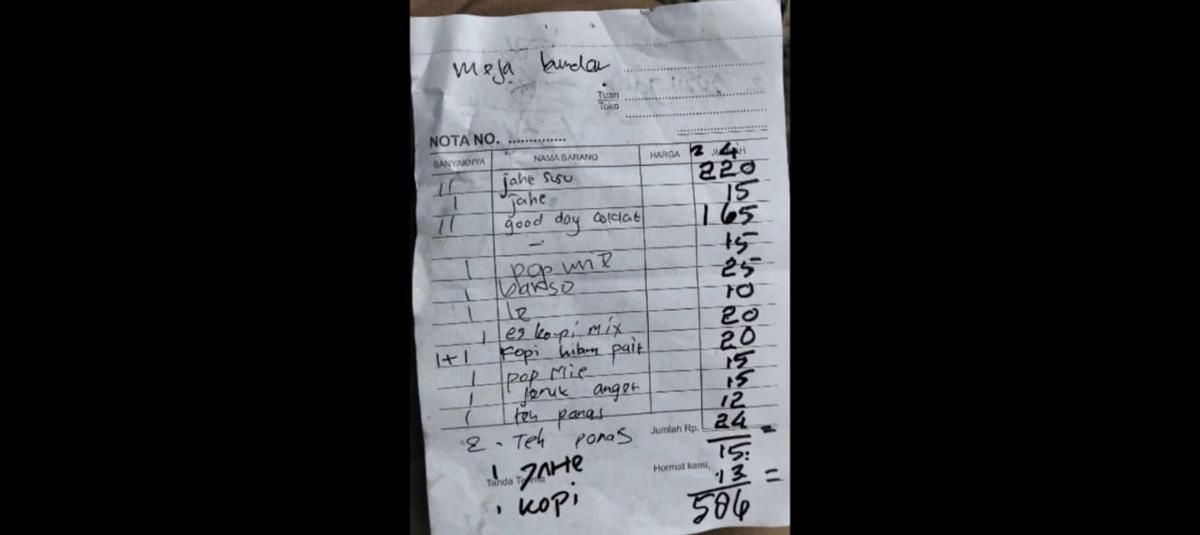 meja bundar
Tuan
Toko
NOTA NO. ..............
BANYAKNYA NAMA BARANG HARGA 2 4
11 jahe susu 220
1 jahe 15
11 good day coklat 165
— 15
1 pop mie 25
1 bakso 10
1 20
1 es kopi mix 20
1+1 kopi hitam pait 15
1 pop Mie 15
1 jeruk anget 12
1 teh panas 24
2 - Teh panas Jumlah Rp. =
1 JAHE 15
Tanda Terima Hormat kami, 13 =
1 KOPI 506